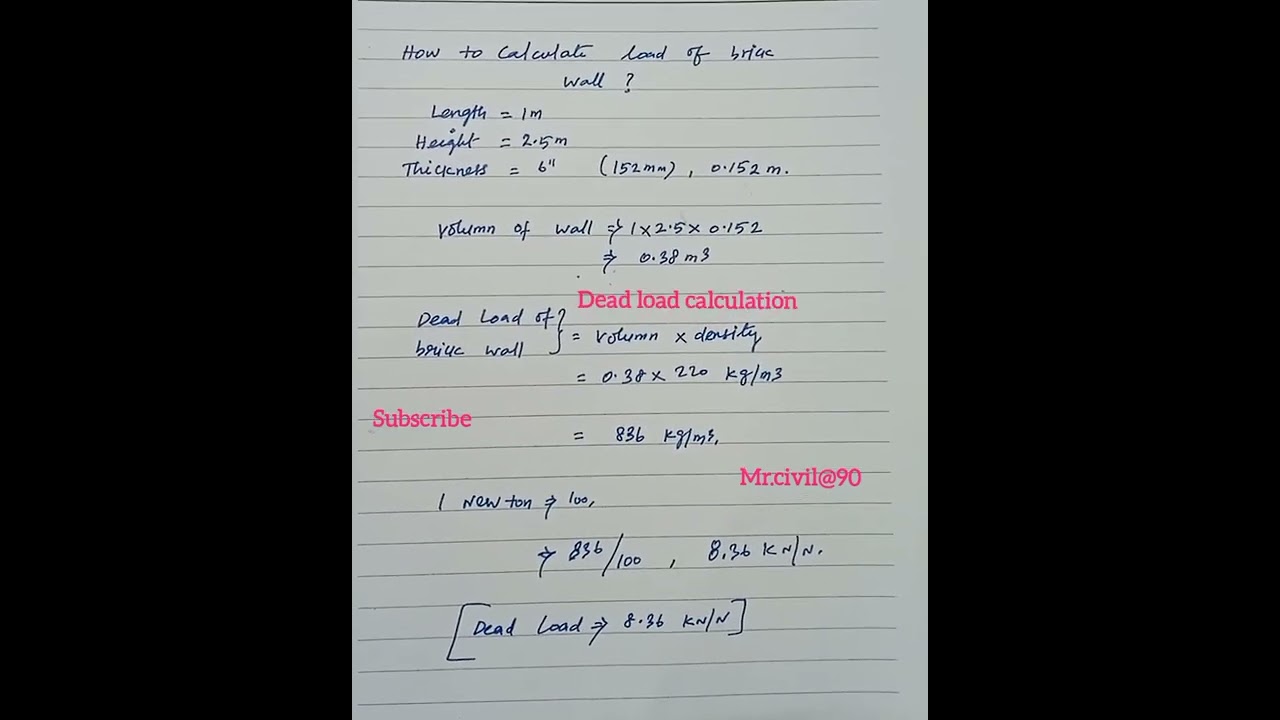 How to calculate load of brick
wall ?
Length = 1m
Height = 2.5m
Thickness = 6" (152mm), 0.152 m.
volumn of wall ⇒ 1 x 2.5 x 0.152
⇒ 0.38 m3
Dead load calculation
Dead Load of
brick wall } = volumn x density
= 0.38 x 220 kg/m3
Subscribe
= 836 kg/m3,
Mr.civil@90
1 Newton ⇒ 100,
⇒ 836/100 , 8.36 KN/N.
[Dead Load ⇒ 8.36 KN/N]